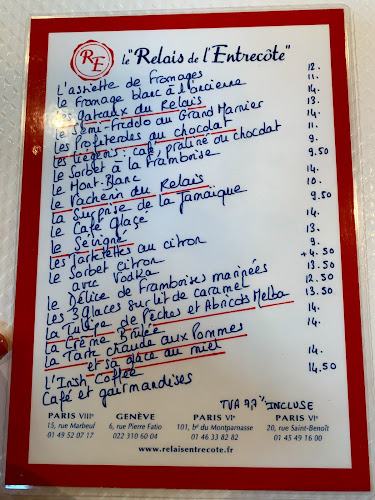 RE
le "Relais de l'Entrecôte"
L'assiette de fromages 12.
Le fromage blanc à l'ancienne 11.
Les gâteaux du Relais 14.
Le Semi-freddo au Grand Marnier 13.
Les Profiteroles au chocolat 14.
Les Liégeois : café, praliné ou chocolat 11.
Le Sorbet à la framboise 9.
Le Mont-Blanc 9.50
Le Vacherin du Relais 14.
La Surprise de la Jamaïque 10.
Le Café Glacé 9.50
Le Sévigné 14.
Les Tartelettes au citron 13.
Le Sorbet citron 9.
avec Vodka +4.50
Le Délice de framboises marinées 13.50
Les 3 Glaces sur lit de caramel 12.50
La Tulipe de Pêches et Abricots Melba 13.50
La Crème Brûlée 14.
La Tarte chaude aux Pommes 14.
et sa glace au miel
L'Irish Coffee 14.
Café et gourmandises 14.50
TVA 7,7% INCLUSE
PARIS VIIIe GENÈVE PARIS VIe PARIS VIe
15, rue Marbeuf 6, rue Pierre Fatio 101, bd du Montparnasse 20, rue Saint-Benoît
01 49 52 07 17 022 310 60 04 01 46 33 82 82 01 45 49 16 00
www.relaisentrecote.fr